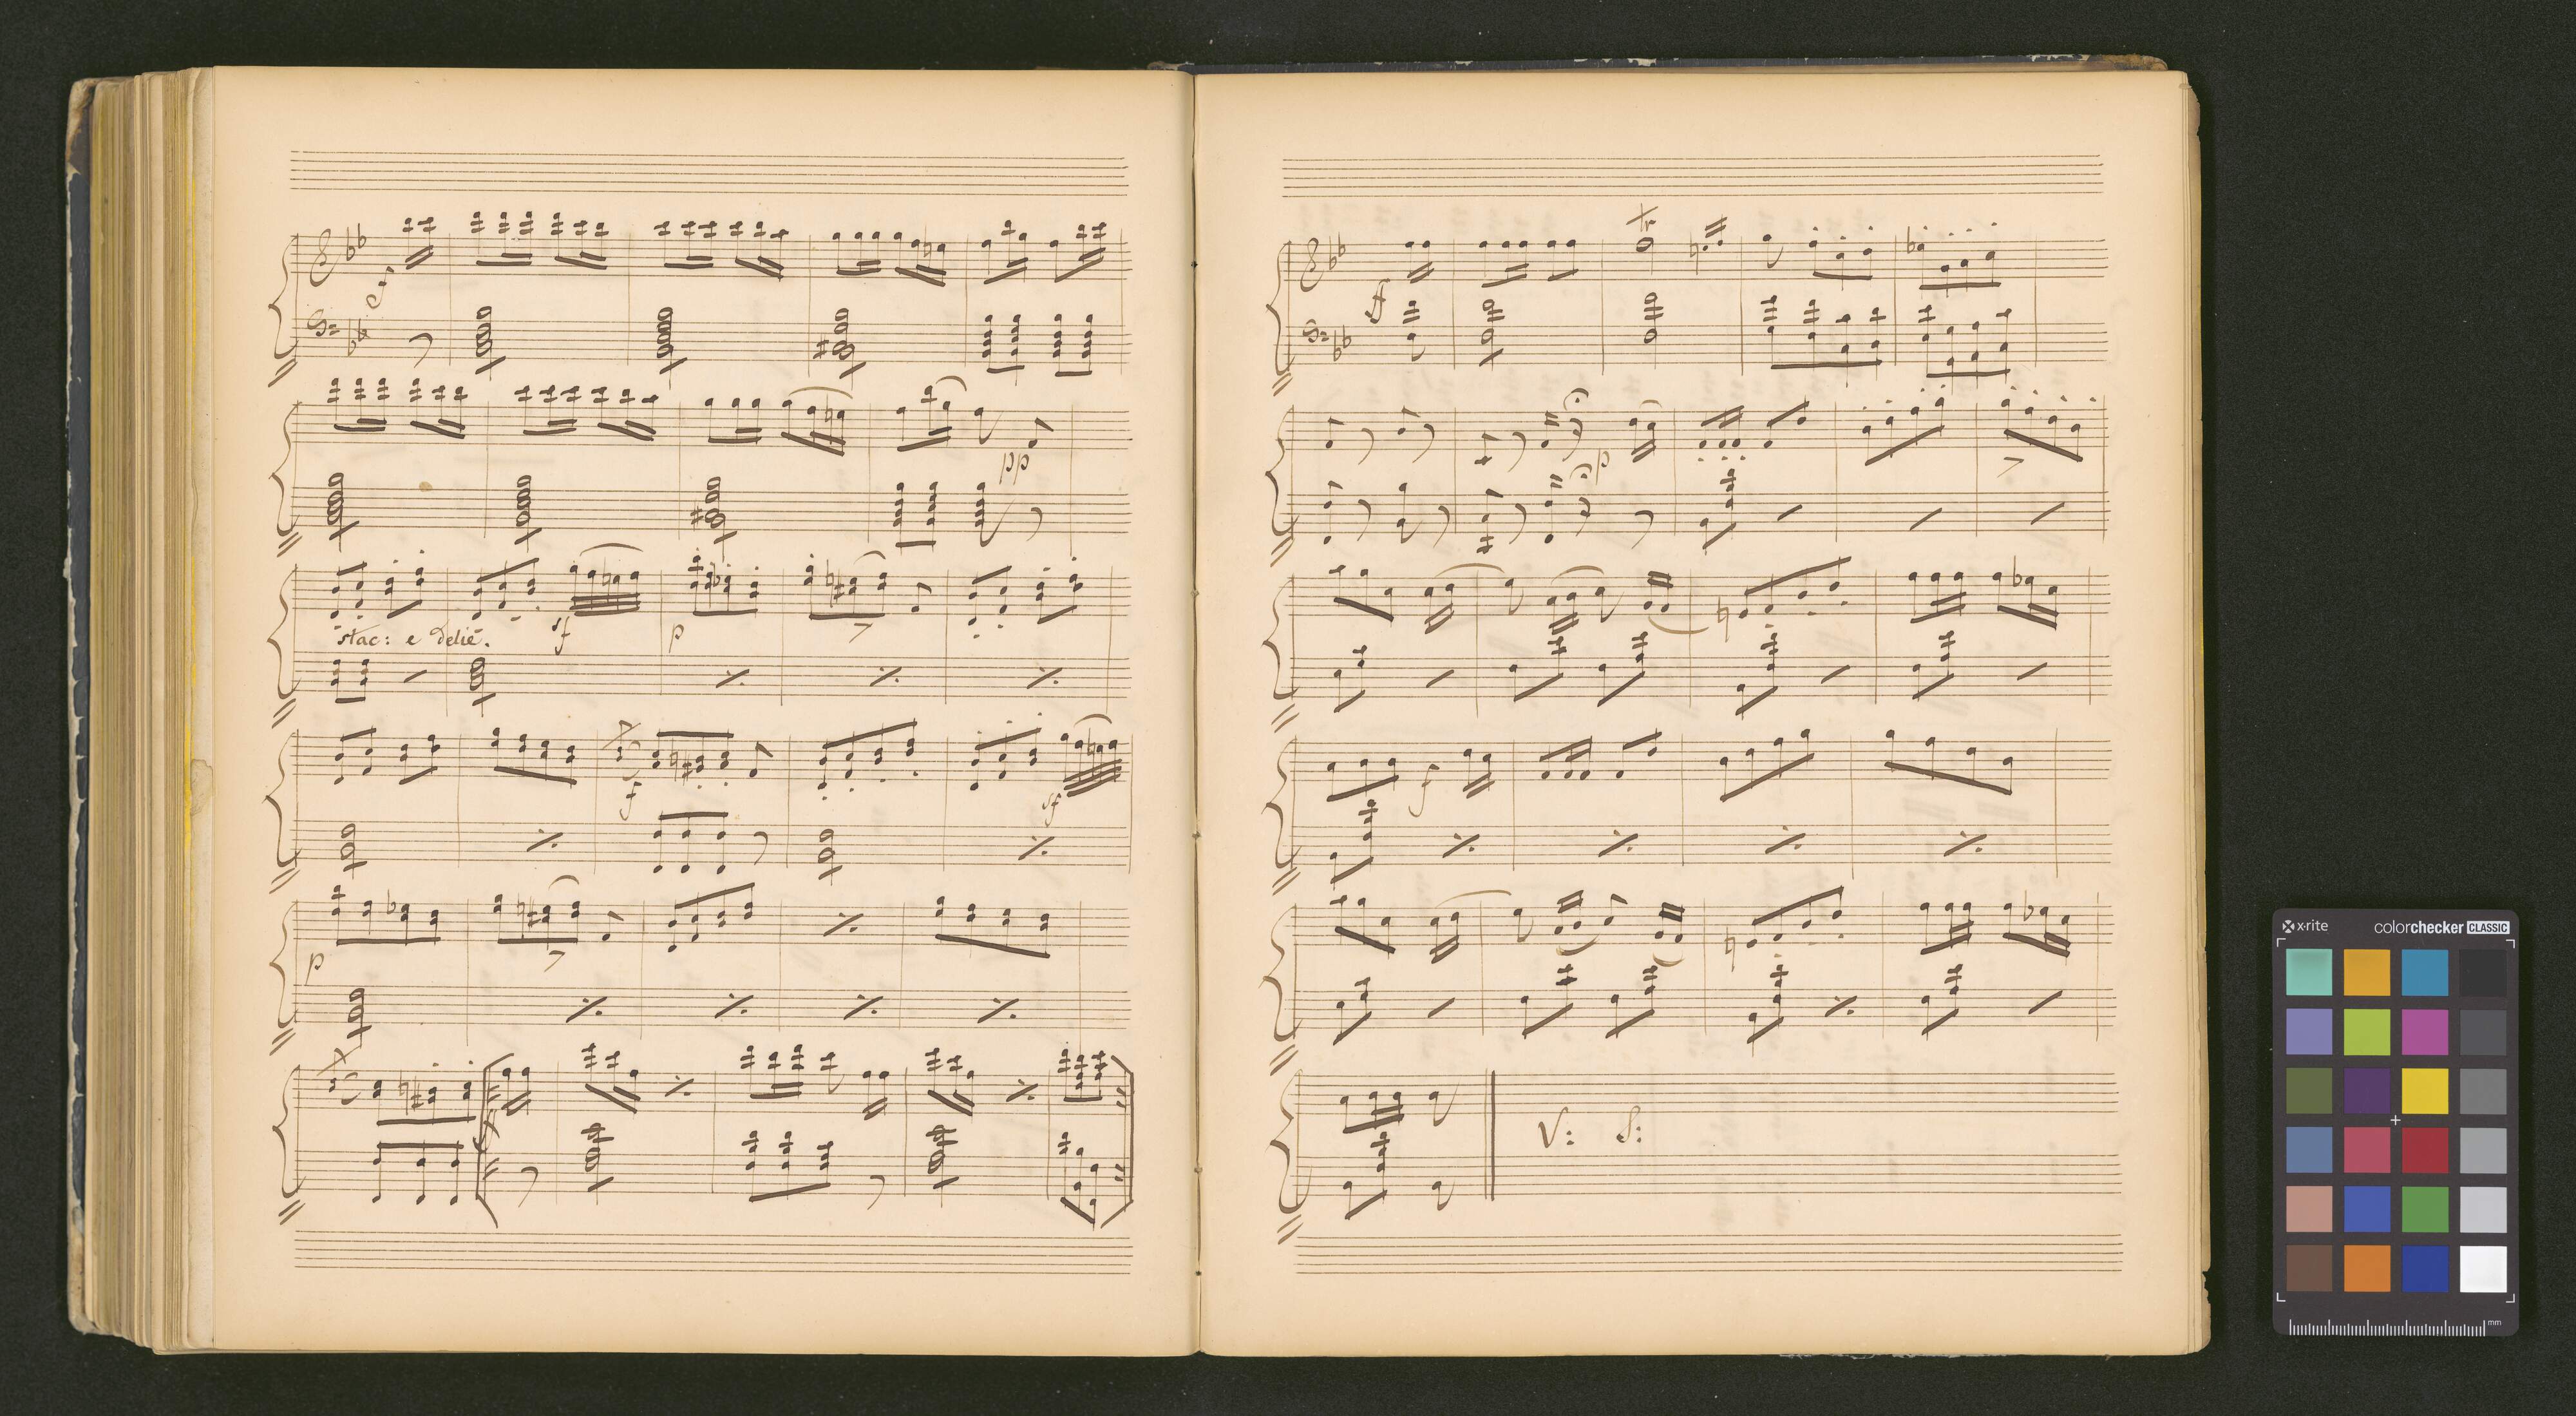 f
pp
stac: e delié. sf p
f sf
p
f
f
tr
p
f
V: S:
x·rite colorchecker CLASSIC
mm